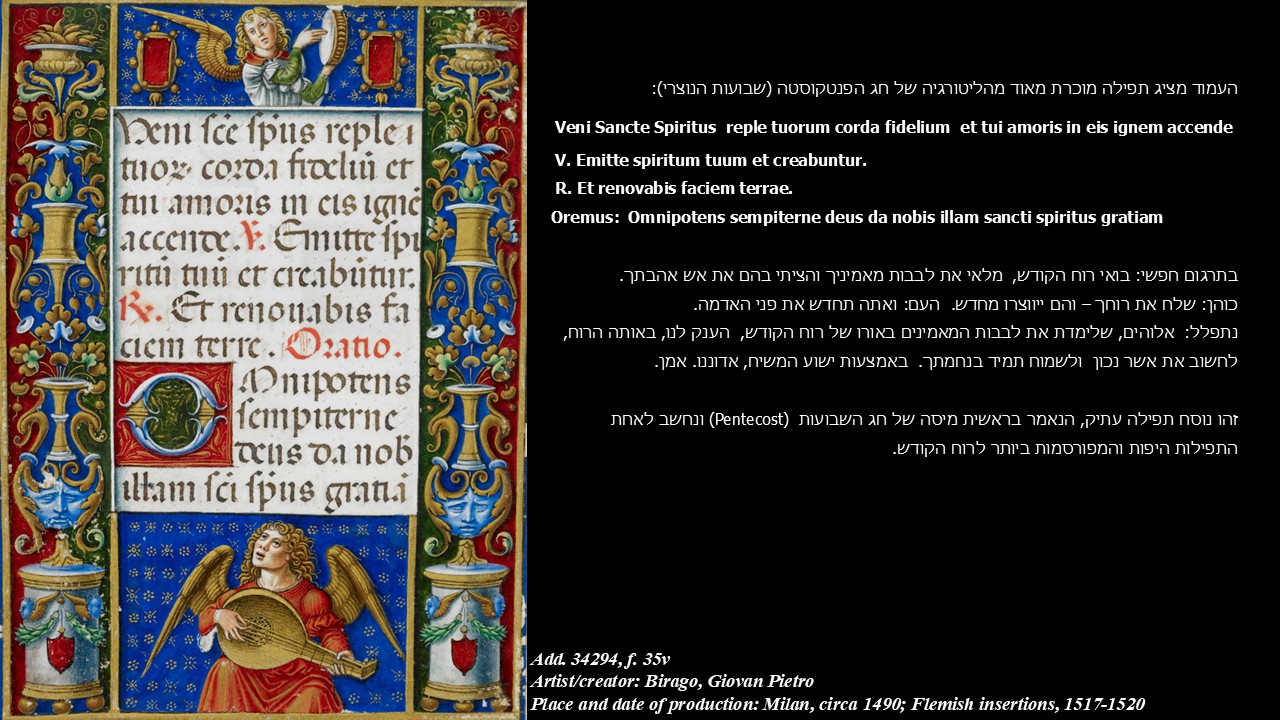 Veni sc̄e sp̄us reple ı
tuoꝝ corda fideliū et
tui amoris in eis ignē
accende. V. Emitte spi
ritū tuū et creabūtur.
R. Et renouabis fa
ciem terre. Oratio.
OMnipotens
sempiterne
deus da nob̄
illam sc̄i sp̄us gratiā
העמוד מציג תפילה מוכרת מאוד מהליטורגיה של חג הפנטקוסטה (שבועות הנוצרי):
Veni Sancte Spiritus reple tuorum corda fidelium et tui amoris in eis ignem accende
V. Emitte spiritum tuum et creabuntur.
R. Et renovabis faciem terrae.
Oremus: Omnipotens sempiterne deus da nobis illam sancti spiritus gratiam
בתרגום חפשי: בואי רוח הקודש, מלאי את לבבות מאמיניך והציתי בהם את אש אהבתך.
כוהן: שלח את רוחך – והם ייווצרו מחדש. העם: ואתה תחדש את פני האדמה.
נתפלל: אלוהים, שלימדת את לבבות המאמינים באורו של רוח הקודש, הענק לנו, באותה הרוח,
לחשוב את אשר נכון ולשמוח תמיד בנחמתך. באמצעות ישוע המשיח, אדוננו. אמן.
זהו נוסח תפילה עתיק, הנאמר בראשית מיסה של חג השבועות (Pentecost) ונחשב לאחת
התפילות היפות והמפורסמות ביותר לרוח הקודש.
Add. 34294, f. 35v
Artist/creator: Birago, Giovan Pietro
Place and date of production: Milan, circa 1490; Flemish insertions, 1517-1520